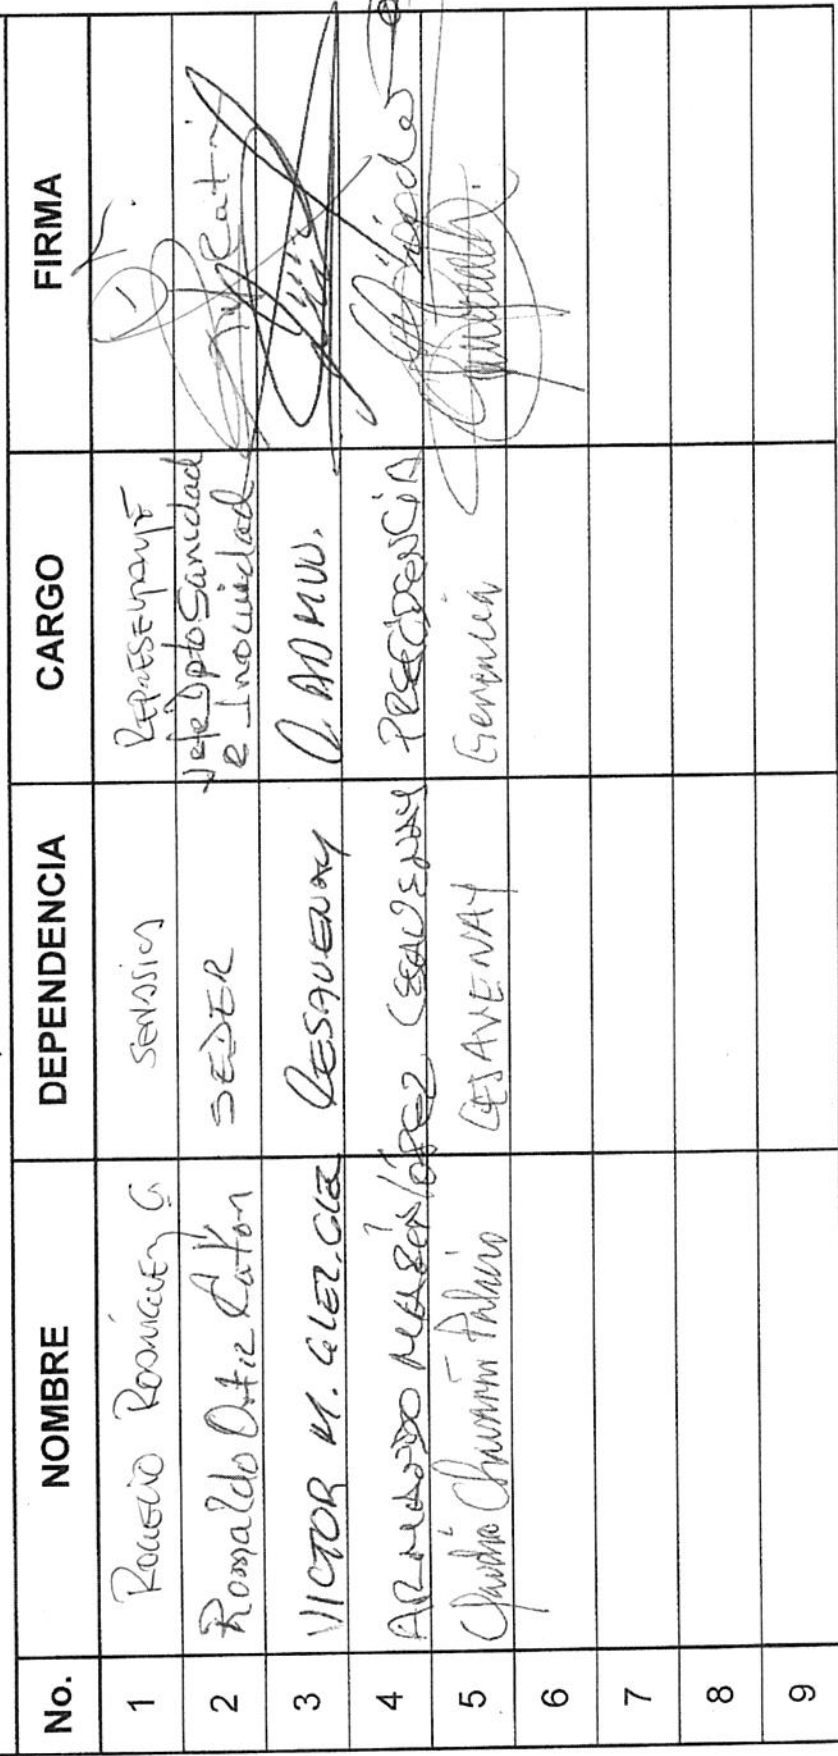 No. NOMBRE DEPENDENCIA CARGO FIRMA
1 ROGELIO RODRÍGUEZ G. SENASICA REPRESENTANTE
2 Romaldo Ortiz Catón SEDER Jefe Dpto Sanidad
e Inocuidad
3 VICTOR M. GLEZ. GLZ CESAVENAY C. ADMVO.
4 ARMANDO LÓPEZ CESAVENAY PRESIDENCIA
5 Chavarín Palacio CESAVENAY Gerencia
6
7
8
9